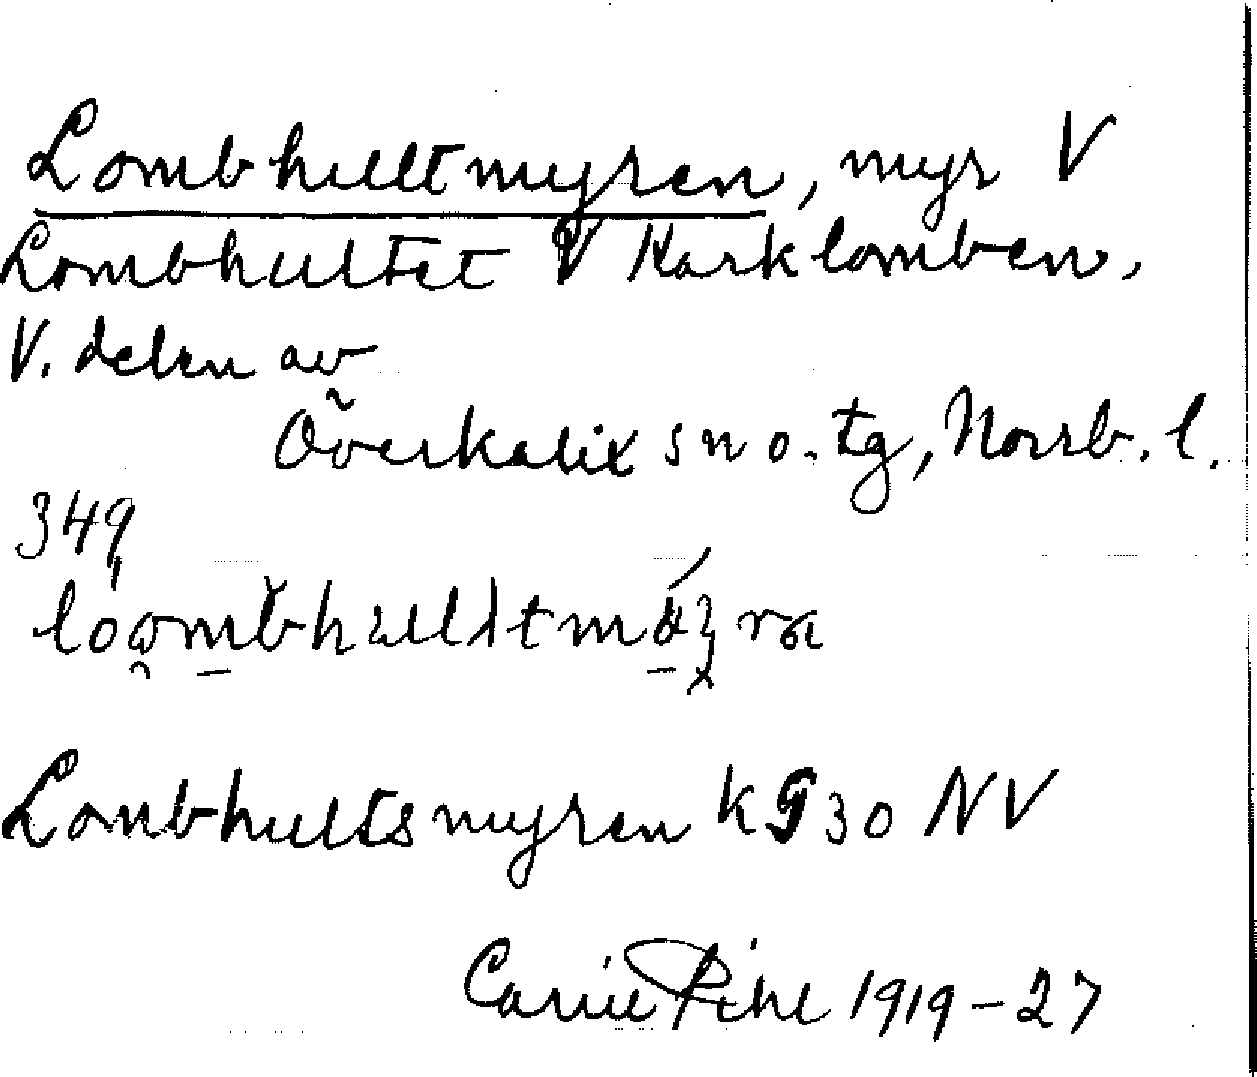 Lombhultmyren, myr V
Lombhultet V Karklomben,
V. delen av
Överkalix sn o. tg, Norrb. l.
349
Lombhultsmyren kg 30 NV
Carrie Pihl 1919-27